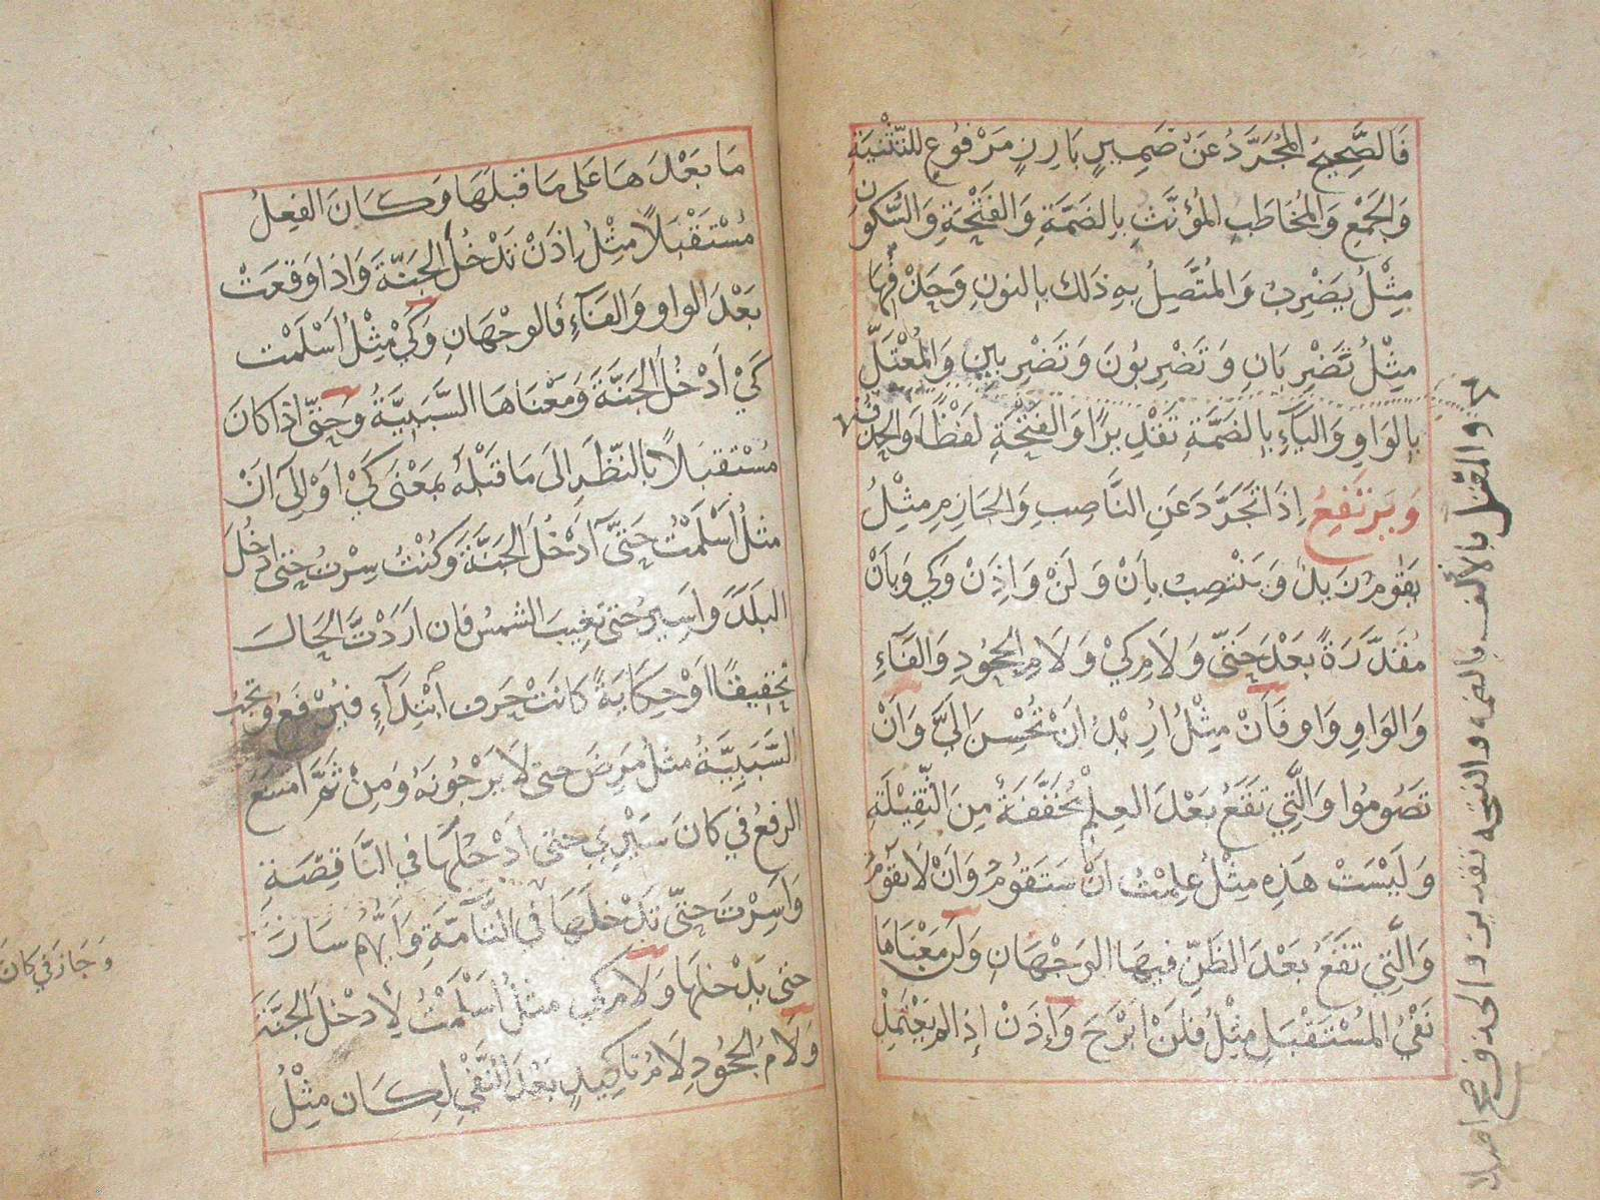 فَالصَّحِيحُ المُجَرَّدُ عَنْ ضَمِيرٍ بَارِزٍ مَرْفُوعٍ لِلتَّثْنِيَةِ
وَالجَمْعِ وَالمُخَاطَبِ المُؤَنَّثِ بِالضَمَّةِ وَالفَتْحَةِ وَالسُّكُونِ
مِثْلُ يَضْرِبُ وَالمُتَّصِلُ بِهِ ذَلِكَ بِالنونِ وَحَذْفِهَا
مِثْلُ تَضْرِبَانِ وَتَضْرِبُونَ وَتَضْرِبِينَ وَالمُعْتَلُّ
بِالوَاوِ وَاليَآءِ بِالضَمَّةِ تَقْدِيرًا وَالفَتْحَةِ لَفْظًا وَالحَذْفِ
وَيَرْتَفِعُ اِذَا تَجَرَّدَ عَنِ النَّاصِبِ وَالجَازِمِ مِثْلُ
يَقُومُ زَيدٌ وَيَنْتَصِبُ بِاَنْ وَلَنْ وَاِذَنْ وَكَي وَبِاَنْ
مُقَدَّرَةً بَعْدَ حَتَّى وَلَامِ كَيْ وَلَامِ الجُحُودِ وَالفَآءِ
وَالوَاوِ وَاو فَاَنْ مِثْلُ اُرِيْدُ اَنْ تُحْسِنَ اِلَيَّ وَاَنْ
تَصُومُوا وَالَّتِي تَقَعُ بَعْدَ العِلْمِ مُخَفَّفَةٌ مِنَ الثَّقِيْلَةِ
وَلَيْسَتْ هَذِهِ مِثْلُ عَلِمْتُ اَنْ سَتَقُومُ وَاَنْ لَا يَقُومُ
وَالَّتِي تَقَعُ بَعْدَ الظَنِّ فِيهَا الوَجْهَانِ وَلَنْ مَعْنَاهَا
نَفْيُ المُسْتَقْبَلِ مِثْلُ فَلَنْ اَبْرَحَ وَاِذَنْ اِذَا لَمْ يَعْتَمِدْ
والمعتل بالألف بالضمه والفتحه تقديرا والحذف صح اصلا
مَا بَعْدَهَا عَلَى مَا قَبلَهَا وَكَانَ الفِعلُ
مُسْتَقْبَلًا مِثْلُ اِذَنْ تَدْخُلَ الجَنَّةَ وَاِذَا وَقَعَتْ
بَعْدَ الواو وَالفَآءِ فَالوَجْهَانِ وَكَيْ مِثْلُ اَسْلَمْتُ
كَيْ اَدْخُلَ الجَنَّةَ وَمَعْنَاهَا السَّبَبِيَّةُ وَحَتَّى اِذَا كَانَ
مُسْتَقبَلًا بِالنَّظَرِ اِلَى مَا قَبْلَهُ بِمَعْنَى كَيْ اَوْ اِلَى اَنْ
مثلُ اَسْلَمْتُ حَتَّى اَدْخُلَ الجَنَّةَ وَكُنْتُ سِرْتُ حَتى ادخُلَ
البَلَدَ وَاَسِيرُ حتى تَغِيبَ الشمسُ فَاِن اَرَدْتَ الحَالَ
تَحْقِيقًا اَوْ حِكَايَةً كَانَتْ حَرْفَ ابْتِدَآءٍ فَيُرْفَعُ وَتَجِبُ
السَّبَبِيَّةُ مثلُ مَرِضَ حتى لَا يَرْجُونَهُ وَمِنْ ثَمَّ امتنعَ
الرفعُ فِي كَانَ سَيْرِي حتى اَدْخُلَهَا في النَّاقِصَةِ
وَاَسِرْتَ حَتَّى تَدْخُلَهَا في التَّامَّةِ وَاَيُّهُم سَارَ
حَتى يَدْخُلَهَا وَلَامُ كَي مثلُ اَسْلَمْتُ لِاَدْخُلَ الجَنَّةَ
وَلَامُ الجُحُودِ لَامُ تَاكِيدٍ بَعْدَ النَّفْيِ لِكَانَ مِثْلُ
وَجاز في كان